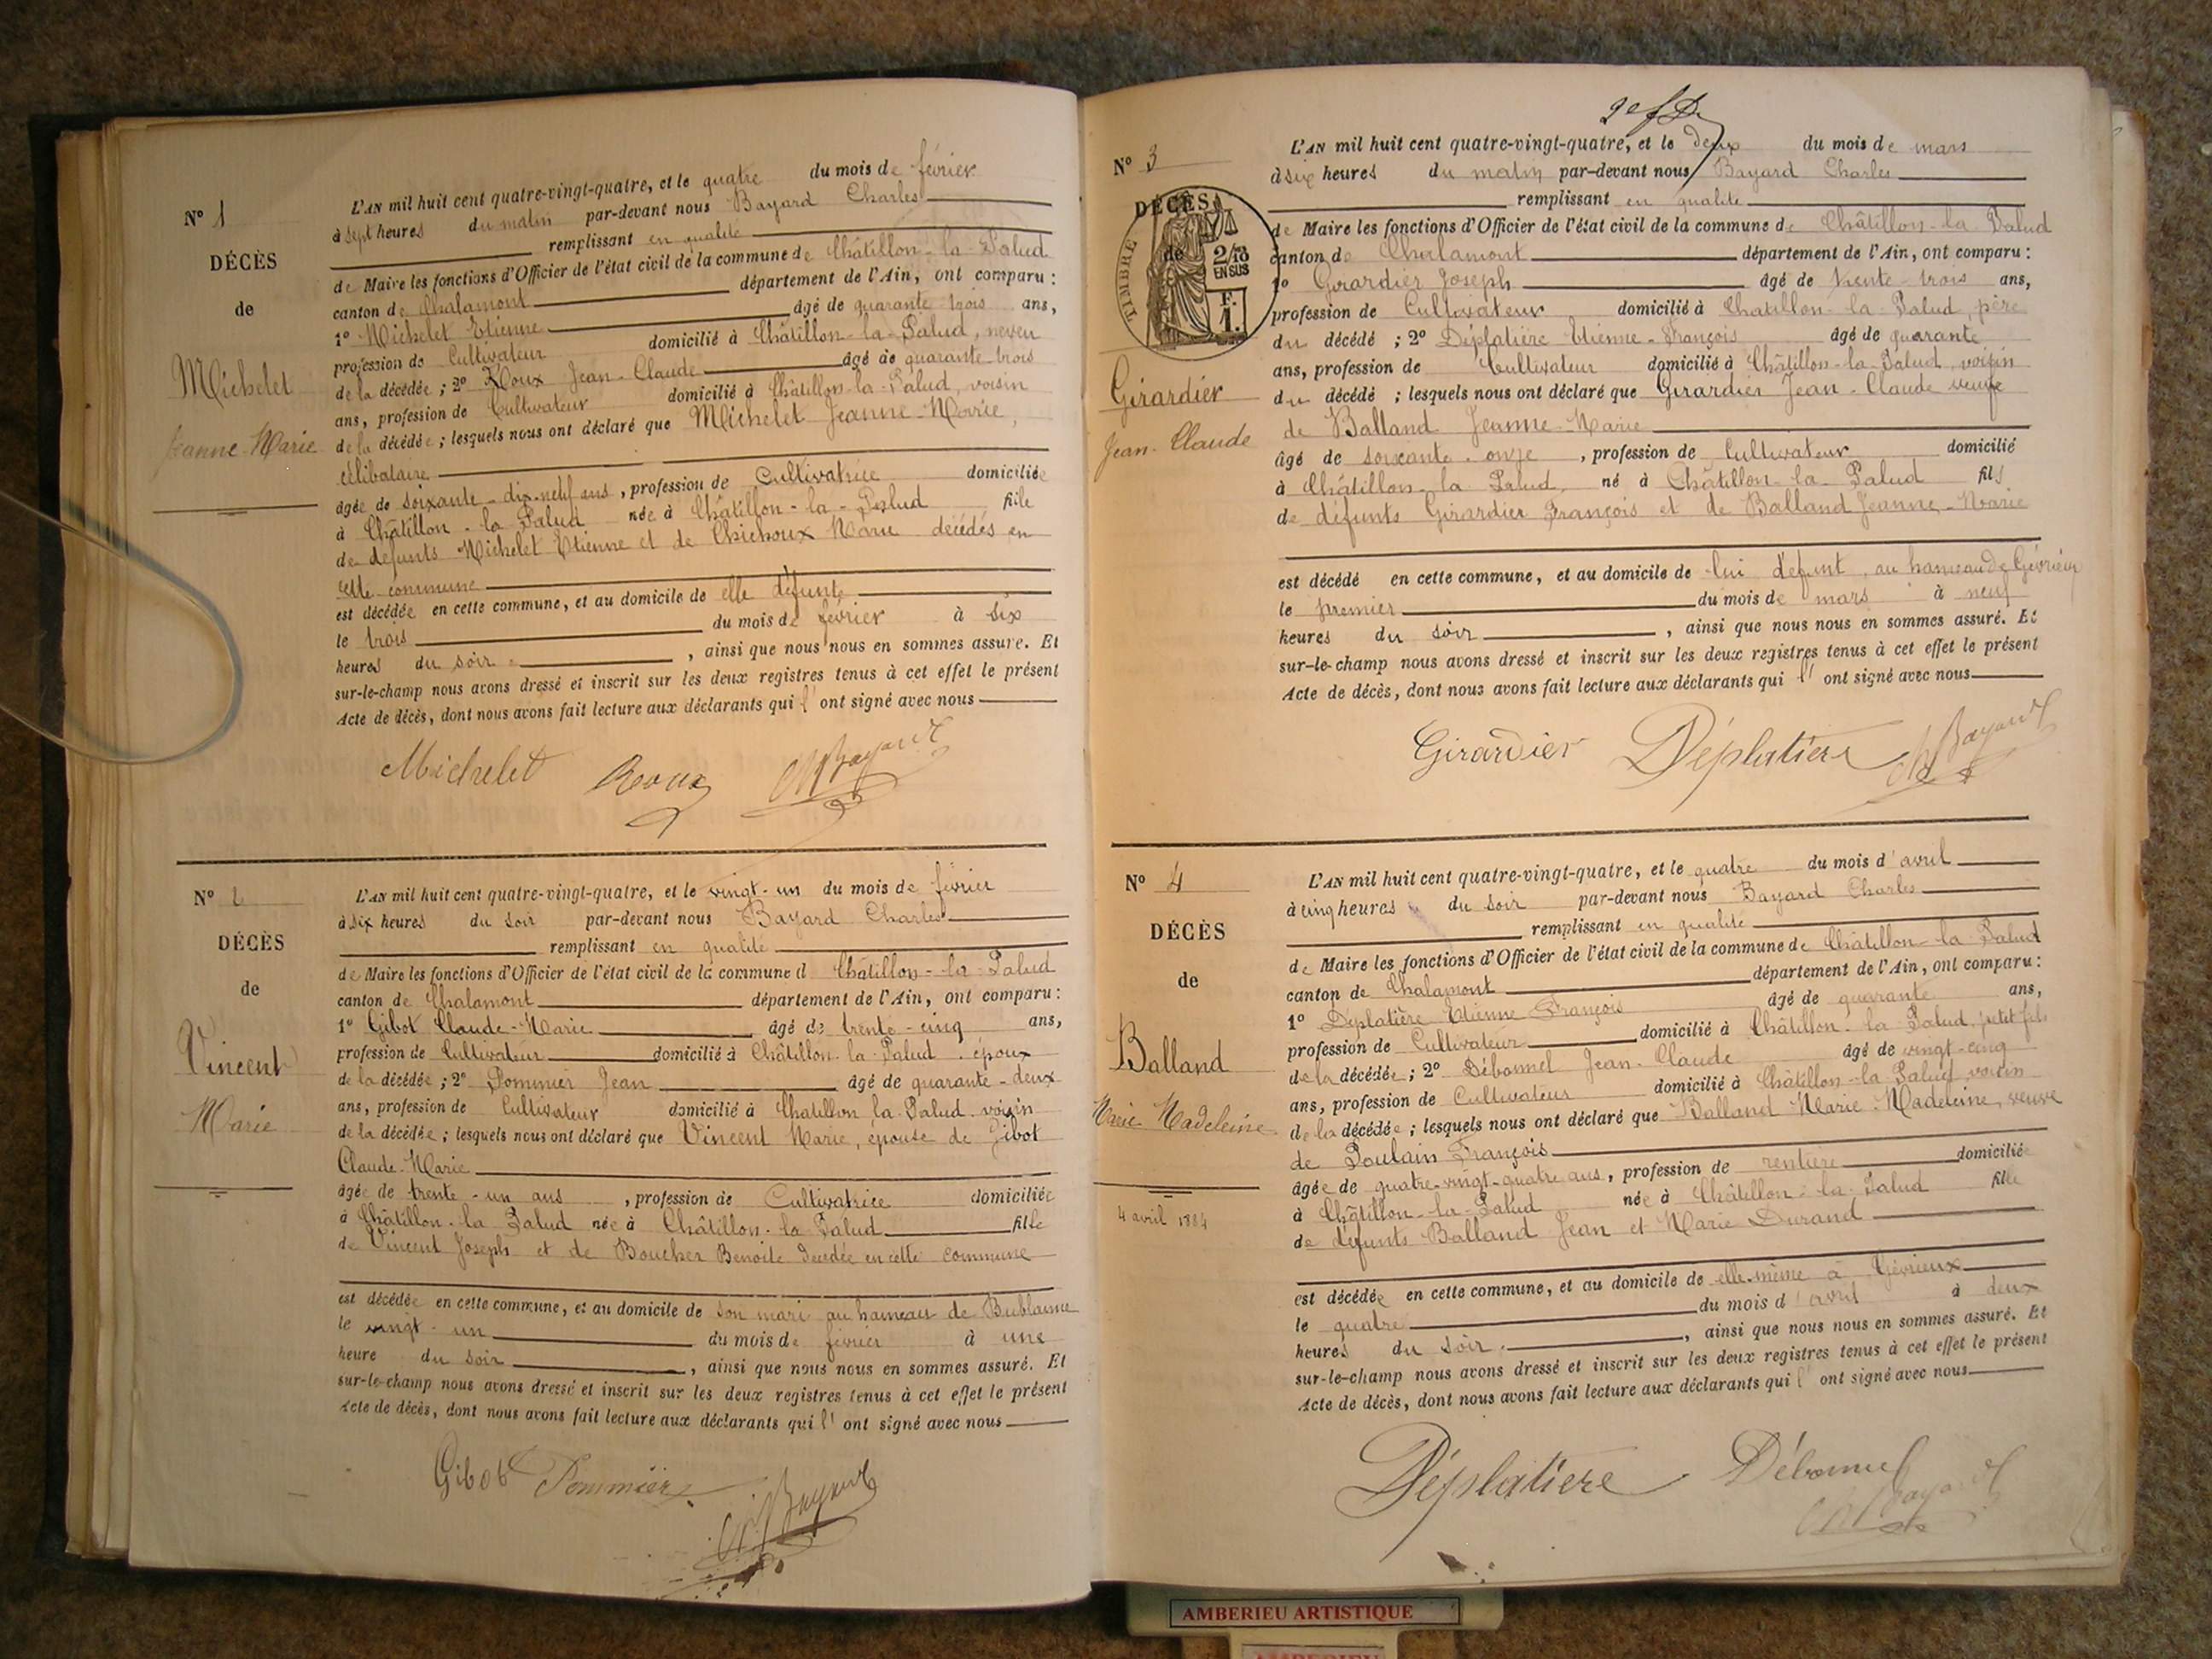 N° 1
DÉCÈS
de
Michelet
Jeanne-Marie
L'AN mil huit cent quatre-vingt-quatre, et le quatre du mois de février
à sept heures du matin par-devant nous Bayard Charles
remplissant en qualité
de Maire les fonctions d'Officier de l'état civil de la commune de Châtillon-la-Palud
canton de Chalamont département de l'Ain, ont comparu :
1° Michelet Etienne âgé de quarante trois ans,
profession de Cultivateur domicilié à Châtillon-la-Palud, neveu
de la décédée ; 2° Roux Jean-Claude âgé de quarante-trois
ans, profession de Cultivateur domicilié à Châtillon-la-Palud, voisin
de la décédée ; lesquels nous ont déclaré que Michelet Jeanne-Marie,
célibataire
âgée de soixante-dix-neuf ans, profession de Cultivatrice domiciliée
à Châtillon-la-Palud née à Châtillon-la-Palud fille
de défunts Michelet Etienne et de Chichoux Marie décédés en
cette commune
est décédée en cette commune, et au domicile de elle défunte
le trois du mois de février à six
heures du soir, ainsi que nous nous en sommes assuré. Et
sur-le-champ nous avons dressé et inscrit sur les deux registres tenus à cet effet le présent
Acte de décès, dont nous avons fait lecture aux déclarants qui l' ont signé avec nous
Michelet Roux Ch Bayard
N° 2
DÉCÈS
de
Vincent
Marie
L'AN mil huit cent quatre-vingt-quatre, et le vingt-un du mois de février
à six heures du soir par-devant nous Bayard Charles
remplissant en qualité
de Maire les fonctions d'Officier de l'état civil de la commune d Châtillon-la-Palud
canton de Chalamont département de l'Ain, ont comparu :
1° Gibot Claude-Marie âgé de trente-cinq ans,
profession de Cultivateur domicilié à Châtillon-la-Palud, époux
de la décédée ; 2° Pommier Jean âgé de quarante-deux
ans, profession de Cultivateur domicilié à Chatillon la-Palud, voisin
de la décédée ; lesquels nous ont déclaré que Vincent Marie, épouse de Gibot
Claude-Marie
âgée de trente-un ans, profession de Cultivatrice domiciliée
à Châtillon-la-Palud née à Châtillon-la-Palud fille
de Vincent Joseph et de Boucher Benoite décédée en cette commune
est décédée en cette commune, et au domicile de son mari au hameau de Bublanne
le vingt-un du mois de février à une
heure du soir, ainsi que nous nous en sommes assuré. Et
sur-le-champ nous avons dressé et inscrit sur les deux registres tenus à cet effet le présent
Acte de décès, dont nous avons fait lecture aux déclarants qui l' ont signé avec nous
Gibot Pommier Ch Bayard
N° 3
DÉCÈS
de
TIMBRE
2/10
EN SUS
F.
1.
Girardier
Jean-Claude
L'AN mil huit cent quatre-vingt-quatre, et le deux du mois de mars
à six heures du matin par-devant nous Bayard Charles
remplissant en qualité
de Maire les fonctions d'Officier de l'état civil de la commune de Châtillon-la-Palud
canton de Chalamont département de l'Ain, ont comparu :
1° Girardier Joseph âgé de trente-trois ans,
profession de Cultivateur domicilié à Chatillon-la-Palud, père
du décédé ; 2° Déplatière Etienne-François âgé de quarante
ans, profession de Cultivateur domicilié à Châtillon-la-Palud, voisin
du décédé ; lesquels nous ont déclaré que Girardier Jean-Claude veuf
de Balland Jeanne-Marie
âgé de soixante-onze, profession de Cultivateur domicilié
à Châtillon-la Palud, né à Châtillon-la-Palud fils
de défunts Girardier François et de Balland Jeanne-Marie
est décédé en cette commune, et au domicile de lui défunt, au hameau de Gévrieux
le premier du mois de mars à neuf
heures du soir, ainsi que nous nous en sommes assuré. Et
sur-le-champ nous avons dressé et inscrit sur les deux registres tenus à cet effet le présent
Acte de décès, dont nous avons fait lecture aux déclarants qui l' ont signé avec nous
Girardier Déplatiere Ch Bayard
N° 4
DÉCÈS
de
Balland
Marie Madeleine
4 avril 1884
L'AN mil huit cent quatre-vingt-quatre, et le quatre du mois d'avril
à cinq heures du soir par-devant nous Bayard Charles
remplissant en qualité
de Maire les fonctions d'Officier de l'état civil de la commune de Châtillon-la-Palud
canton de Chalamont département de l'Ain, ont comparu :
1° Deplatière Etienne François âgé de quarante ans,
profession de Cultivateur domicilié à Châtillon-la Palud, petit fils
de la décédée ; 2° Débonnel Jean-Claude âgé de vingt-cinq
ans, profession de Cultivateur domicilié à Châtillon-la Palud voisin
de la décédée ; lesquels nous ont déclaré que Balland Marie-Madeleine, veuve
de Poulain François
âgée de quatre-vingt-quatre ans, profession de rentière domiciliée
à Châtillon-la-Palud née à Châtillon-la-Palud fille
de défunts Balland Jean et Marie Durand
est décédée en cette commune, et au domicile de elle-même à Gévrieux
le quatre du mois d'avril à deux
heures du soir, ainsi que nous nous en sommes assuré. Et
sur-le-champ nous avons dressé et inscrit sur les deux registres tenus à cet effet le présent
Acte de décès, dont nous avons fait lecture aux déclarants qui l' ont signé avec nous
Déplatiere Débonnel Ch Bayard
AMBERIEU ARTISTIQUE
AMBERIEU